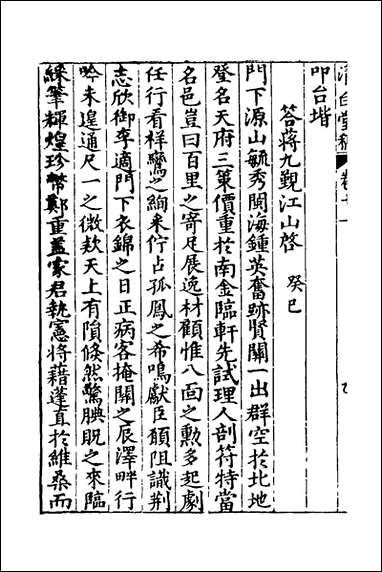 清白堂稿 卷十一
叩台堦
答蔣九覲江山啓 癸巳
門下源山毓秀閩海鍾英奮跡賢關一出群空於北地
登名天府三策價重於南金臨軒先試理人剖符特當
名邑豈曰百里之寄足展逸材顧惟八面之勲多起劇
任行看祥鸞之絢來佇占孤鳳之希鳴獻臣頎阻識荆
志欣御李適門下衣錦之日正病客掩關之辰澤畔行
吟未遑通尺一之微欵天上有隕倐然驚腆貺之來臨
綵筆輝煌珍幣鄭重葢家君執憲將藉蓬直於維桑而